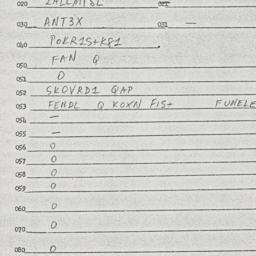 020 2ALLMP8L 021
030 ANT3X 031 —
040 POKR1S+K81
050 FAN Q
051 O
052 SKOVRD1 QAP
053 FENDL Q KOXN FIS+ FUNELE
054 —
055 —
056 O
057 O
058 O
059 O
060 O
070 O
080 O